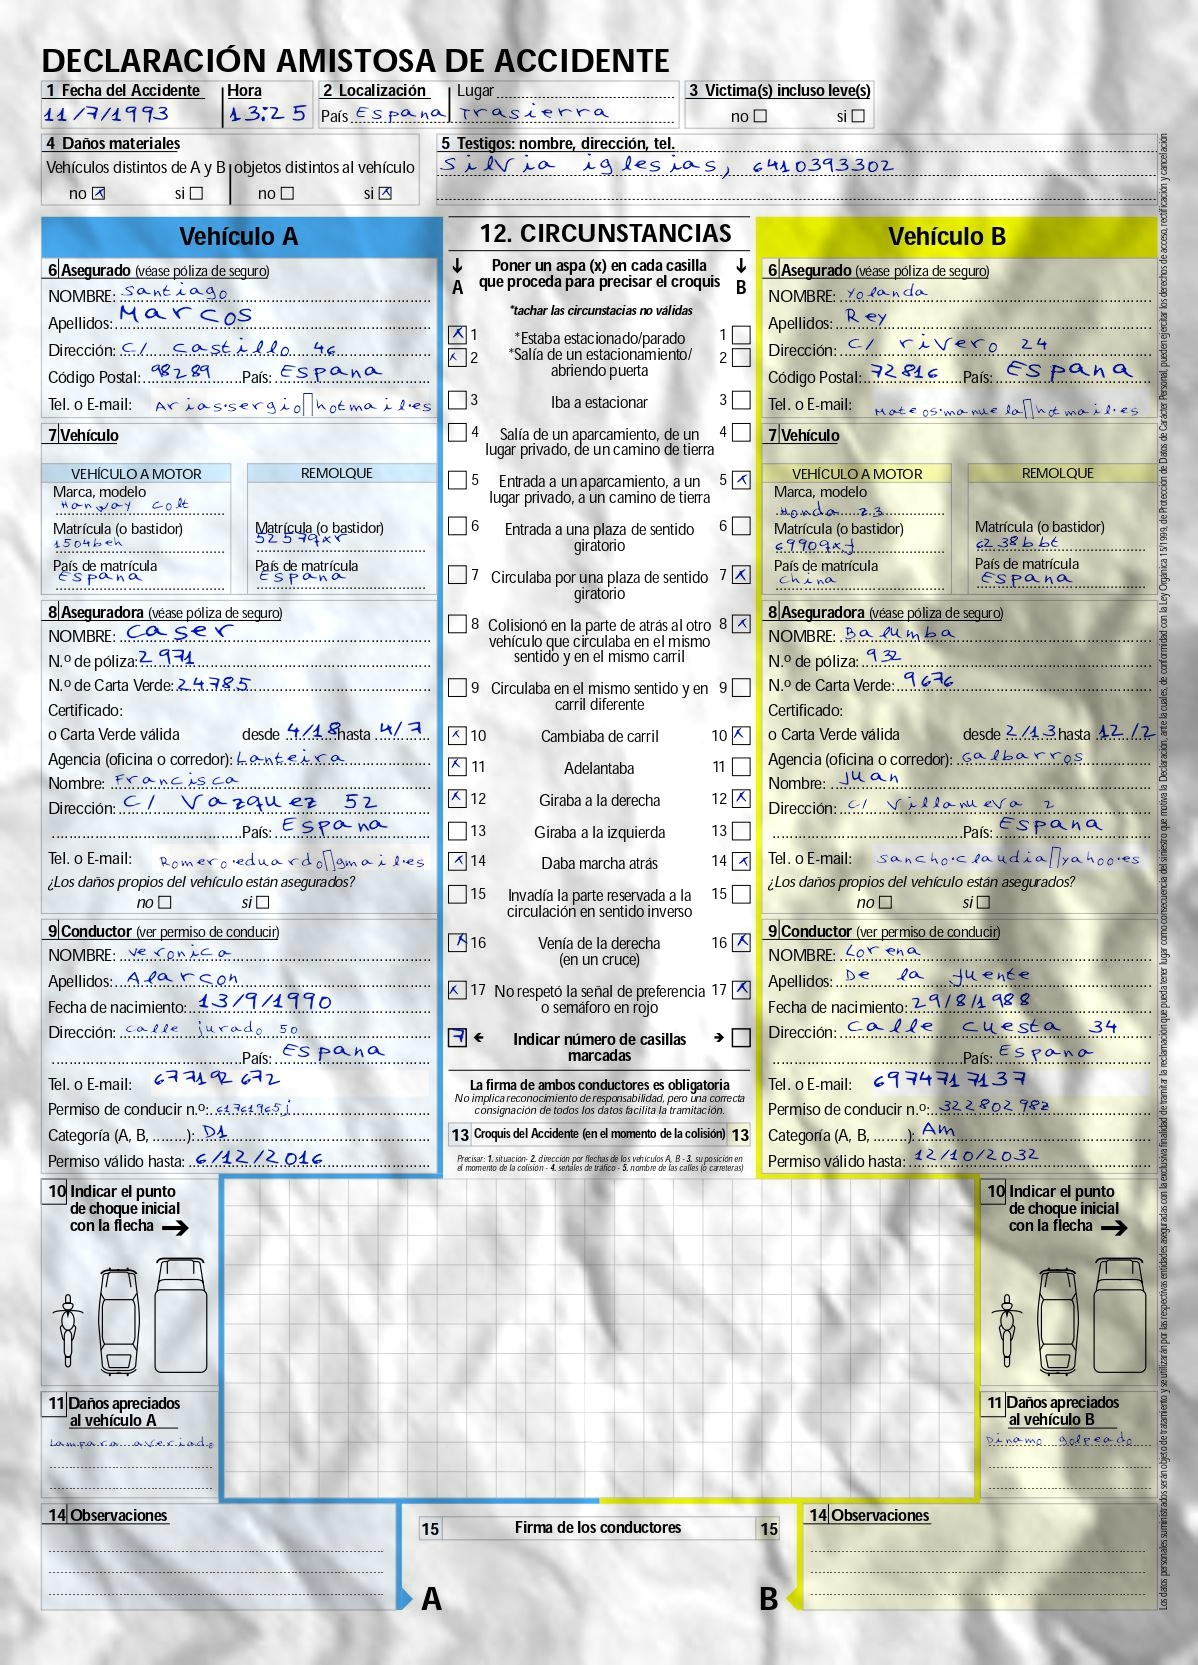 DECLARACIÓN AMISTOSA DE ACCIDENTE
1 Fecha del Accidente
11/7/1993
Hora
13:25
2 Localización
País Espana
Lugar
Trasierra
3 Victima(s) incluso leve(s)
no si
4 Daños materiales
Vehículos distintos de A y B objetos distintos al vehículo
no si no si
5 Testigos: nombre, dirección, tel.
Silvia iglesias, 6410393302
Vehículo A
6 Asegurado (véase póliza de seguro)
NOMBRE: Santiago
Apellidos: Marcos
Dirección: C/ castillo 46
Código Postal: 98289 País: Espana
Tel. o E-mail: Arias.sergio▯hotmail.es
7 Vehículo
VEHÍCULO A MOTOR
Marca, modelo
Hanway Colt
Matrícula (o bastidor)
1504beh
País de matrícula
Espana
REMOLQUE
Matrícula (o bastidor)
5257qxr
País de matrícula
Espana
8 Aseguradora (véase póliza de seguro)
NOMBRE: Caser
N.º de póliza: 2971
N.º de Carta Verde: 24785
Certificado:
o Carta Verde válida desde 4/18 hasta 4/7
Agencia (oficina o corredor): Lanteira
Nombre: Francisca
Dirección: C/ Vazquez 52
País: Espana
Tel. o E-mail: Romero.eduardo▯gmail.es
¿Los daños propios del vehículo están asegurados?
no si
9 Conductor (ver permiso de conducir)
NOMBRE: Veronica
Apellidos: Alarcon
Fecha de nacimiento: 13/9/1990
Dirección: calle jurado 50
País: Espana
Tel. o E-mail: 677192672
Permiso de conducir n.º: 61761965j
Categoría (A, B, ........): D1
Permiso válido hasta: 6/12/2016
12. CIRCUNSTANCIAS
A Poner un aspa (x) en cada casilla que proceda para precisar el croquis B
*tachar las circunstacias no válidas
1 *Estaba estacionado/parado 1
2 *Salía de un estacionamiento/ 2
abriendo puerta
3 Iba a estacionar 3
4 Salía de un aparcamiento, de un 4
lugar privado, de un camino de tierra
5 Entrada a un aparcamiento, a un 5
lugar privado, a un camino de tierra
6 Entrada a una plaza de sentido 6
giratorio
7 Circulaba por una plaza de sentido 7
giratorio
8 Colisionó en la parte de atrás al otro 8
vehículo que circulaba en el mismo
sentido y en el mismo carril
9 Circulaba en el mismo sentido y en 9
carril diferente
10 Cambiaba de carril 10
11 Adelantaba 11
12 Giraba a la derecha 12
13 Giraba a la izquierda 13
14 Daba marcha atrás 14
15 Invadía la parte reservada a la 15
circulación en sentido inverso
16 Venía de la derecha 16
(en un cruce)
17 No respetó la señal de preferencia 17
o semáforo en rojo
7 Indicar número de casillas
marcadas
La firma de ambos conductores es obligatoria
No implica reconocimiento de responsabilidad, pero una correcta
consignación de todos los datos facilita la tramitación.
13 Croquis del Accidente (en el momento de la colisión) 13
Precisar: 1. situación- 2. dirección por flechas de los vehículos A, B - 3. su posición en
el momento de la colisión - 4. señales de tráfico - 5. nombre de las calles (o carreteras)
Vehículo B
6 Asegurado (véase póliza de seguro)
NOMBRE: Yolanda
Apellidos: Rey
Dirección: C/ rivero 24
Código Postal: 72816 País: Espana
Tel. o E-mail: Mateos.manuela▯hotmail.es
7 Vehículo
VEHÍCULO A MOTOR
Marca, modelo
Honda
Matrícula (o bastidor)
País de matrícula
China
REMOLQUE
Matrícula (o bastidor)
6238bbt
País de matrícula
Espana
8 Aseguradora (véase póliza de seguro)
NOMBRE: Balumba
N.º de póliza: 932
N.º de Carta Verde: 9676
Certificado:
o Carta Verde válida desde 2/13 hasta 12/2
Agencia (oficina o corredor): Galbarros
Nombre: Juan
Dirección: C/ Villanueva 2
País: Espana
Tel. o E-mail: Sancho.claudia▯yahoo.es
¿Los daños propios del vehículo están asegurados?
no si
9 Conductor (ver permiso de conducir)
NOMBRE: Lorena
Apellidos: De la fuente
Fecha de nacimiento: 29/8/1988
Dirección: Calle Cuesta 34
País: Espana
Tel. o E-mail: 6974717137
Permiso de conducir n.º:
Categoría (A, B, ........): Am
Permiso válido hasta: 12/10/2032
10 Indicar el punto
de choque inicial
con la flecha
11 Daños apreciados
al vehículo A
Lampara averiado
10 Indicar el punto
de choque inicial
con la flecha
11 Daños apreciados
al vehículo B
Dinamo golpeado
14 Observaciones
15 Firma de los conductores 15
A B
14 Observaciones